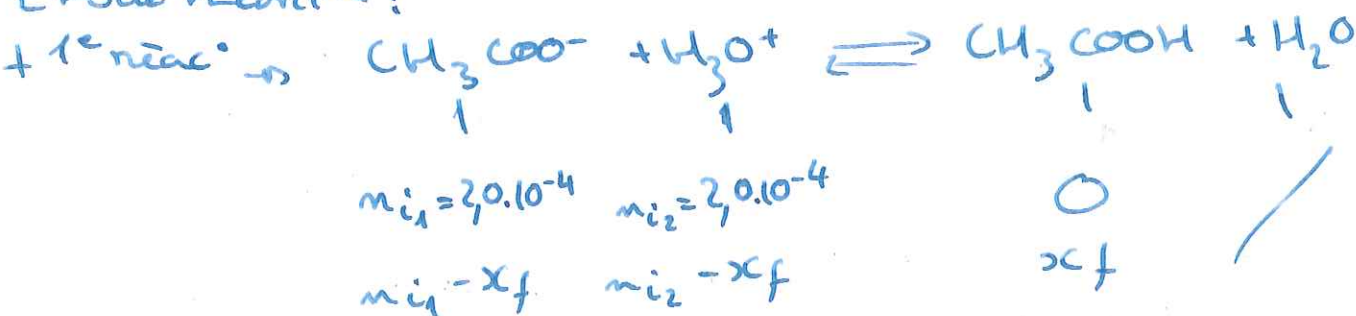 + 1e réac° → CH3COO- + H3O+ ⇌ CH3COOH + H2O
1 1 1 1
ni1 = 2,0.10-4 ni2 = 2,0.10-4 0 /
ni1 - xf ni2 - xf xf